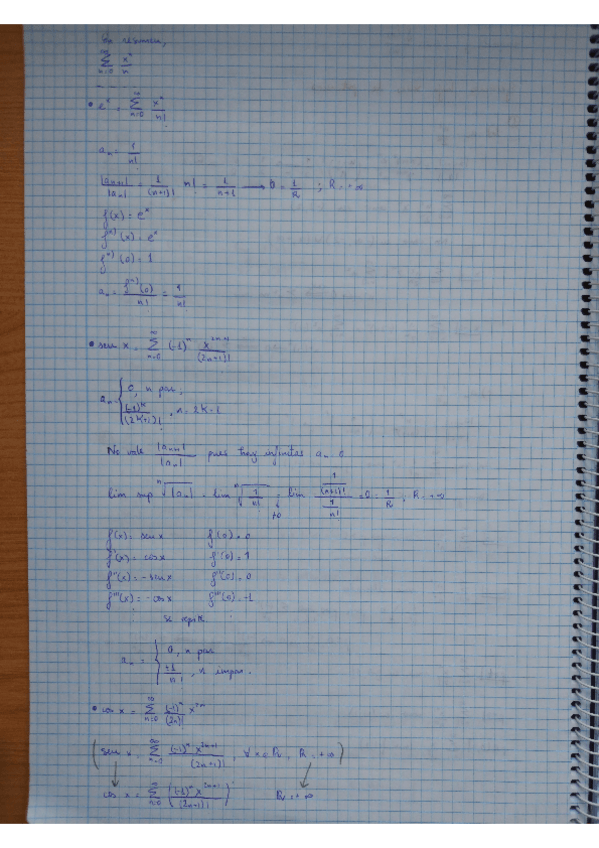 En resumen,
∑_{n=0}^{∞} x^n/n
- - - -
• e^x = ∑_{n=0}^{∞} x^n/n!
a_n = 1/n!
|a_{n+1}|/|a_n| = 1/(n+1)! n! = 1/(n+1) → 0 = 1/R ; R = +∞
f(x) = e^x
f^{n)}(x) = e^x
f^{n)}(0) = 1
a_n = f^{n)}(0)/n! = 1/n!
• sen x = ∑_{n=0}^{∞} (-1)^n x^{2n+1}/(2n+1)!
a_n { 0, n par,
(-1)^k/(2k+1)!, n = 2k+1
No vale |a_{n+1}|/|a_n| pues hay infinitos a_n = 0
lim sup ⁿ√|a_n| = lim ⁿ√(1/n!) = lim (1/(n+1)!)/(1/n!) = 0 = 1/R, R = +∞
f(x) = sen x f(0) = 0
f'(x) = cos x f'(0) = 1
f''(x) = -sen x f''(0) = 0
f'''(x) = -cos x f'''(0) = -1
se repite
a_n = { 0, n par
±1/n!, n impar.
• cos x = ∑_{n=0}^{∞} (-1)^n/(2n)! x^{2n}
(sen x = ∑_{n=0}^{∞} (-1)^n x^{2n+1}/(2n+1)!, ∀x∈ℝ, R = +∞)
cos x = ∑_{n=0}^{∞} ((-1)^n x^{2n+1}/(2n+1)!)' R = +∞